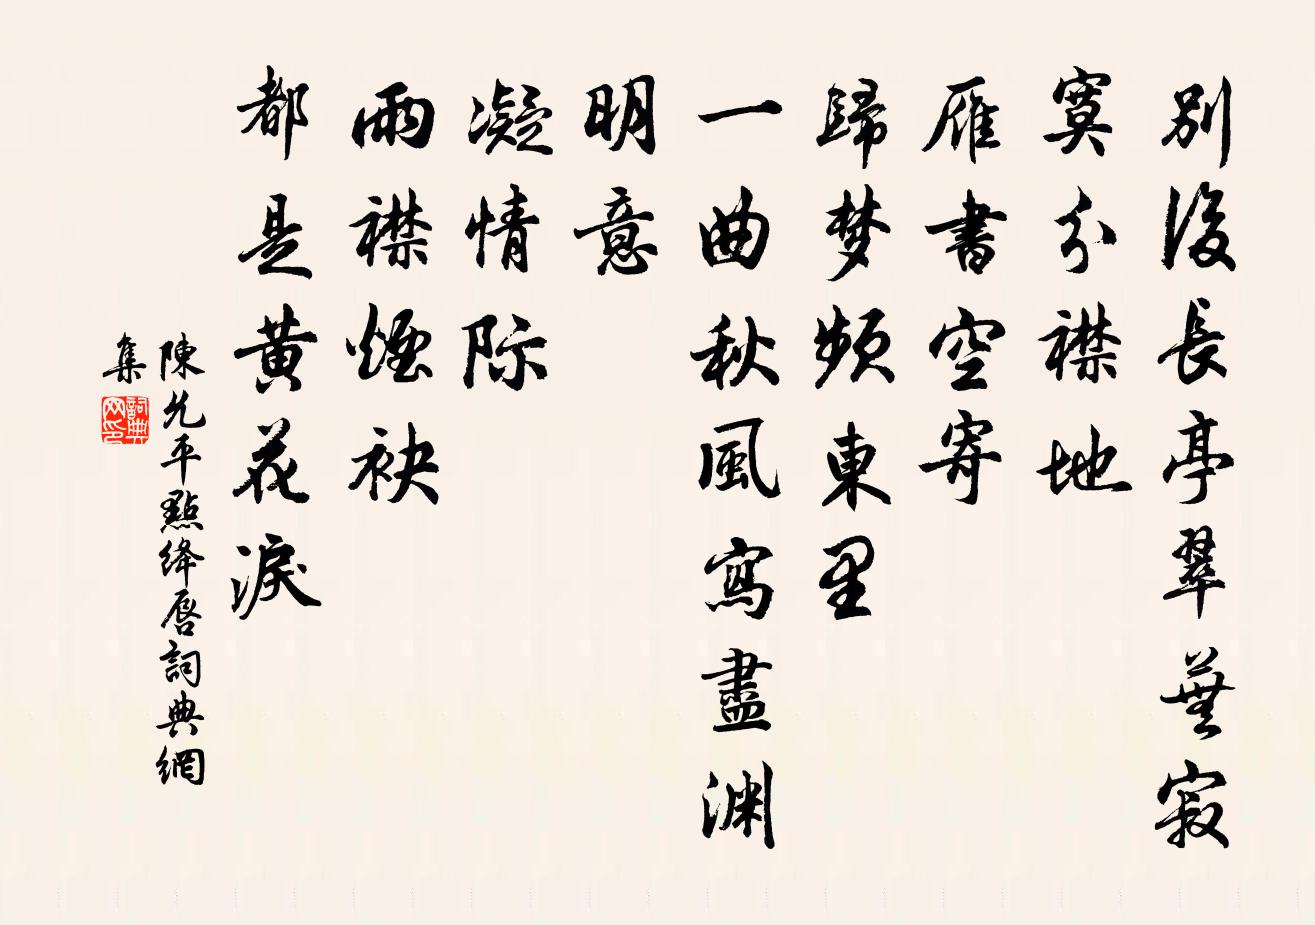 別後長亭翠蕪寂
寞分襟地
雁書空寄
歸梦頻東里
一曲秋風寫盡渊
明意
凝情际
雨襟煙袂
都是黄花淚
陳允平點絳唇詞典網
集
詞典
网印